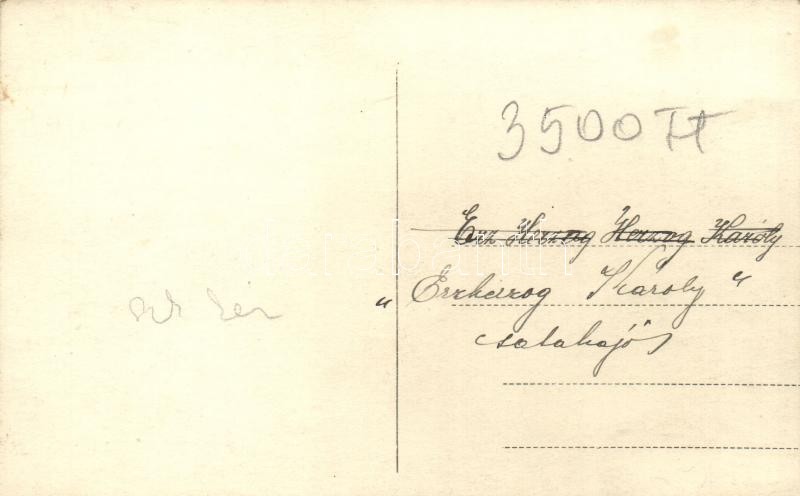 3500 Ft
Erz Herzog Herzog Károly
" Erzházog Karoly "
csatahajó